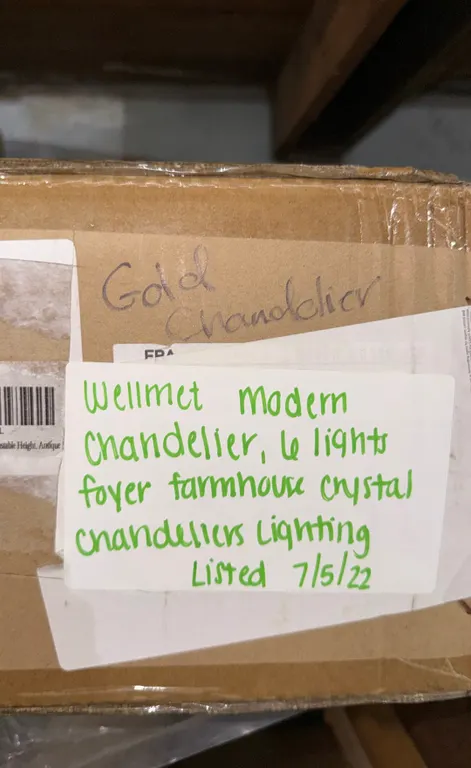 Gold
Chandelier
FBA
Wellmet Modern
Chandelier, 6 lights
foyer farmhouse crystal
chandeliers Lighting
Listed 7/5/22
stable Height, Antique